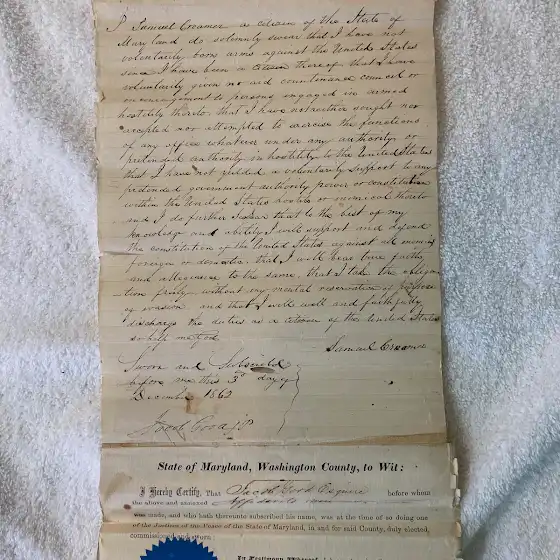 I Samuel Creamer a citizen of the State of
Maryland do solemnly swear that I have not
voluntarily born arms against the United States
since I have been a citizen thereof that I have
voluntarily given no aid countinance council or
encouragement to persons engaged in armed
hostility thereto, that I have neither sought nor
accepted nor attempted to exercise the functions
of any office whatever under any authority or
pretended authority in hostility to the United States
that I have not yielded a voluntary support to any
pretended government authority power or constitution
within the United States hostile or inimical thereto
and I do further swear that to the best of my
knowledge and ability I will support and defend
the constitution of the United States against all enemies
foreign or domestic. that I will bear true faith
and allegiance to the same. that I take this obliga
-tion freely without any mental reservation or purpose
of evasion and that I will well and faithfully
discharge the duties as a citizen of the United States
so help me God
Samuel Creamer
Sworn and Subscribed
before me this 3d day of
December 1862
Jacob
State of Maryland, Washington County, to Wit:
I Hereby Certify, That Jacob Esquire before whom
the above and annexed
made, and who hath thereunto subscribed his name, was at the time of so doing one
of the Justices of the Peace of the State of Maryland, in and for said County, duly elected,
commissioned and sworn
In Testimony Whereof